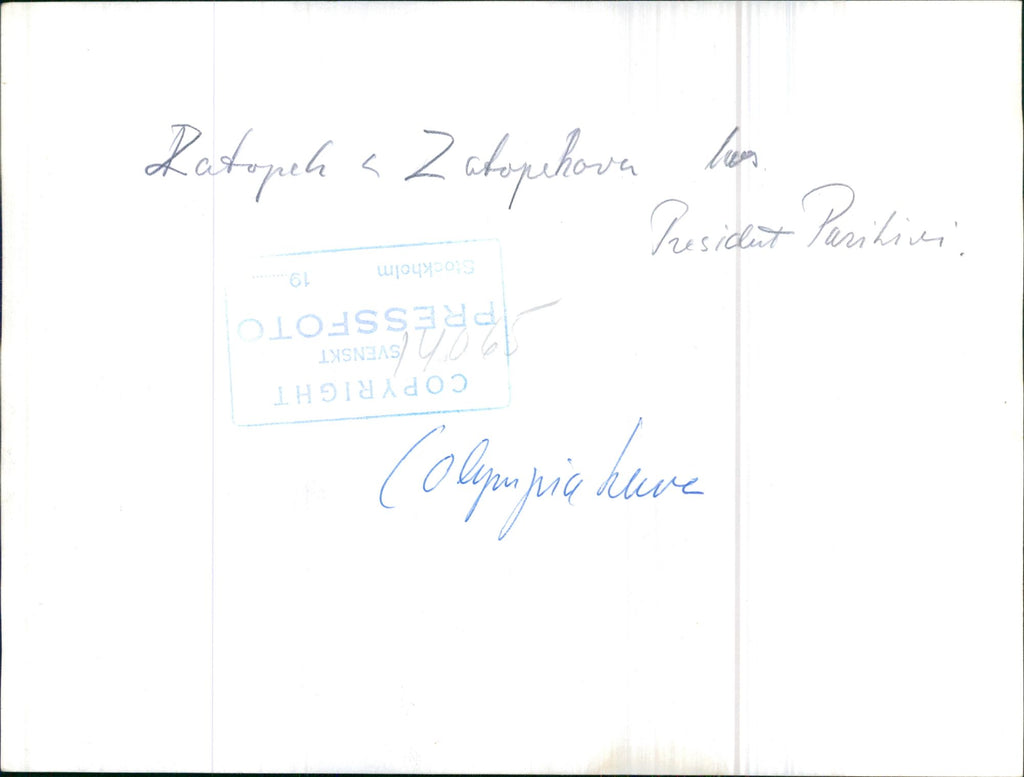 Zatopek & Zatopekova hos
President Paasikivi.
COPYRIGHT
SVENSKT
PRESSFOTO
Stockholm 19........
14065
(Olympia kuva